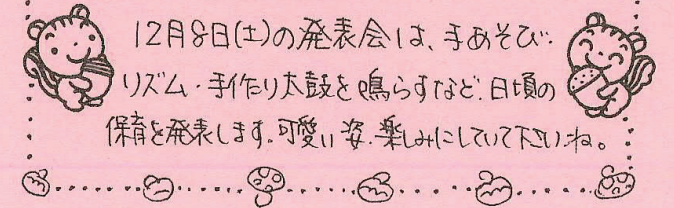 12月8日(土)の発表会は、手あそび・
リズム・手作り太鼓を鳴らすなど、日頃の
保育を発表します。可愛い姿、楽しみにしていて下さいね。